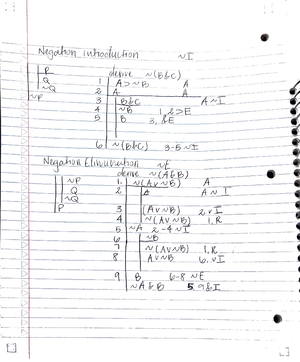 Negation introduction ~I
P
Q
~Q
~P
derive ~(B&C)
1 A>~B A
2 A A
3 B&C A ~I
4 ~B 1,2>E
5 B 3,&E
6 ~(B&C) 3-5 ~I
Negation Elimination ~E
~P
Q
~Q
P
derive ~(A&B)
1. ~(Av~B) A
2 A A ~I
3 (Av~B) 2 vI
4 ~(Av~B) 1,R
5 ~A 2-4 ~I
6 ~B
7 ~(Av~B) 1,R
8 Av~B 6,vI
9 B 6-8 ~E
~A&B 5,9&I